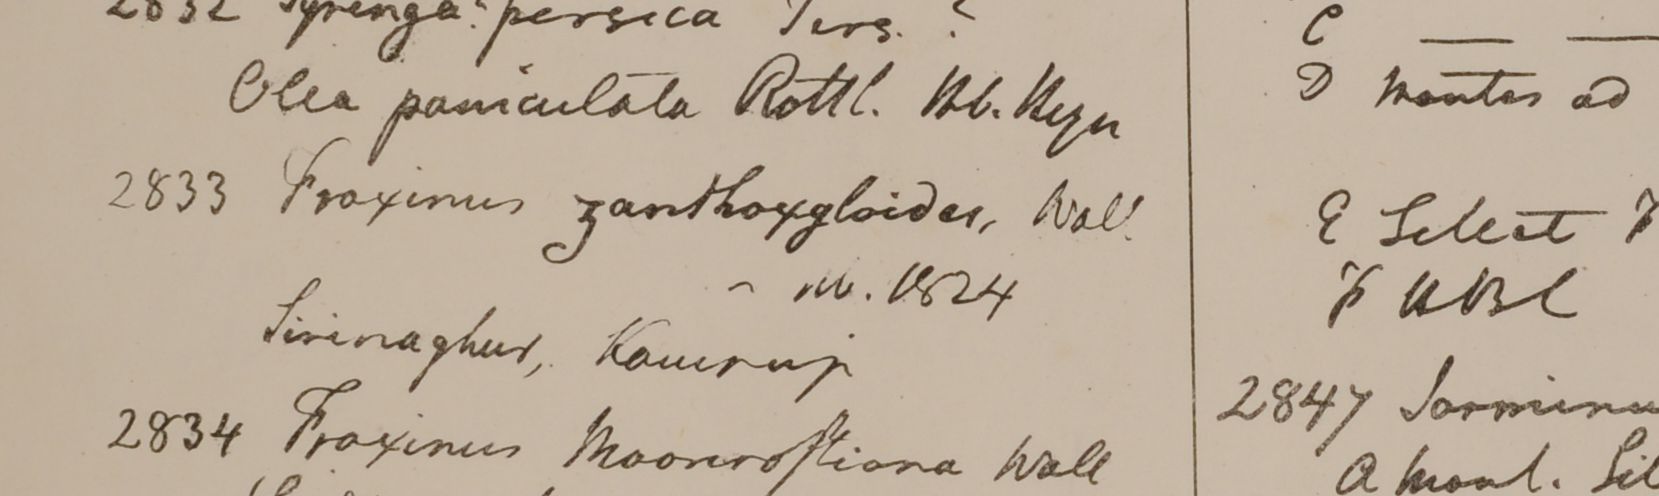 2832 Syringa? persica Pers. ?
Olea paniculata Rottl. Hb. Heyn
2833 Fraxinus zanthoxyloides, Wall.
~ Hb. 1824
Sirinaghur, Kamrup
2834 Fraxinus Moorcroftiana Wall
C — —
D Montes ad
E Silhet
F HBC
2847 Jasminu
A Mont. Sil